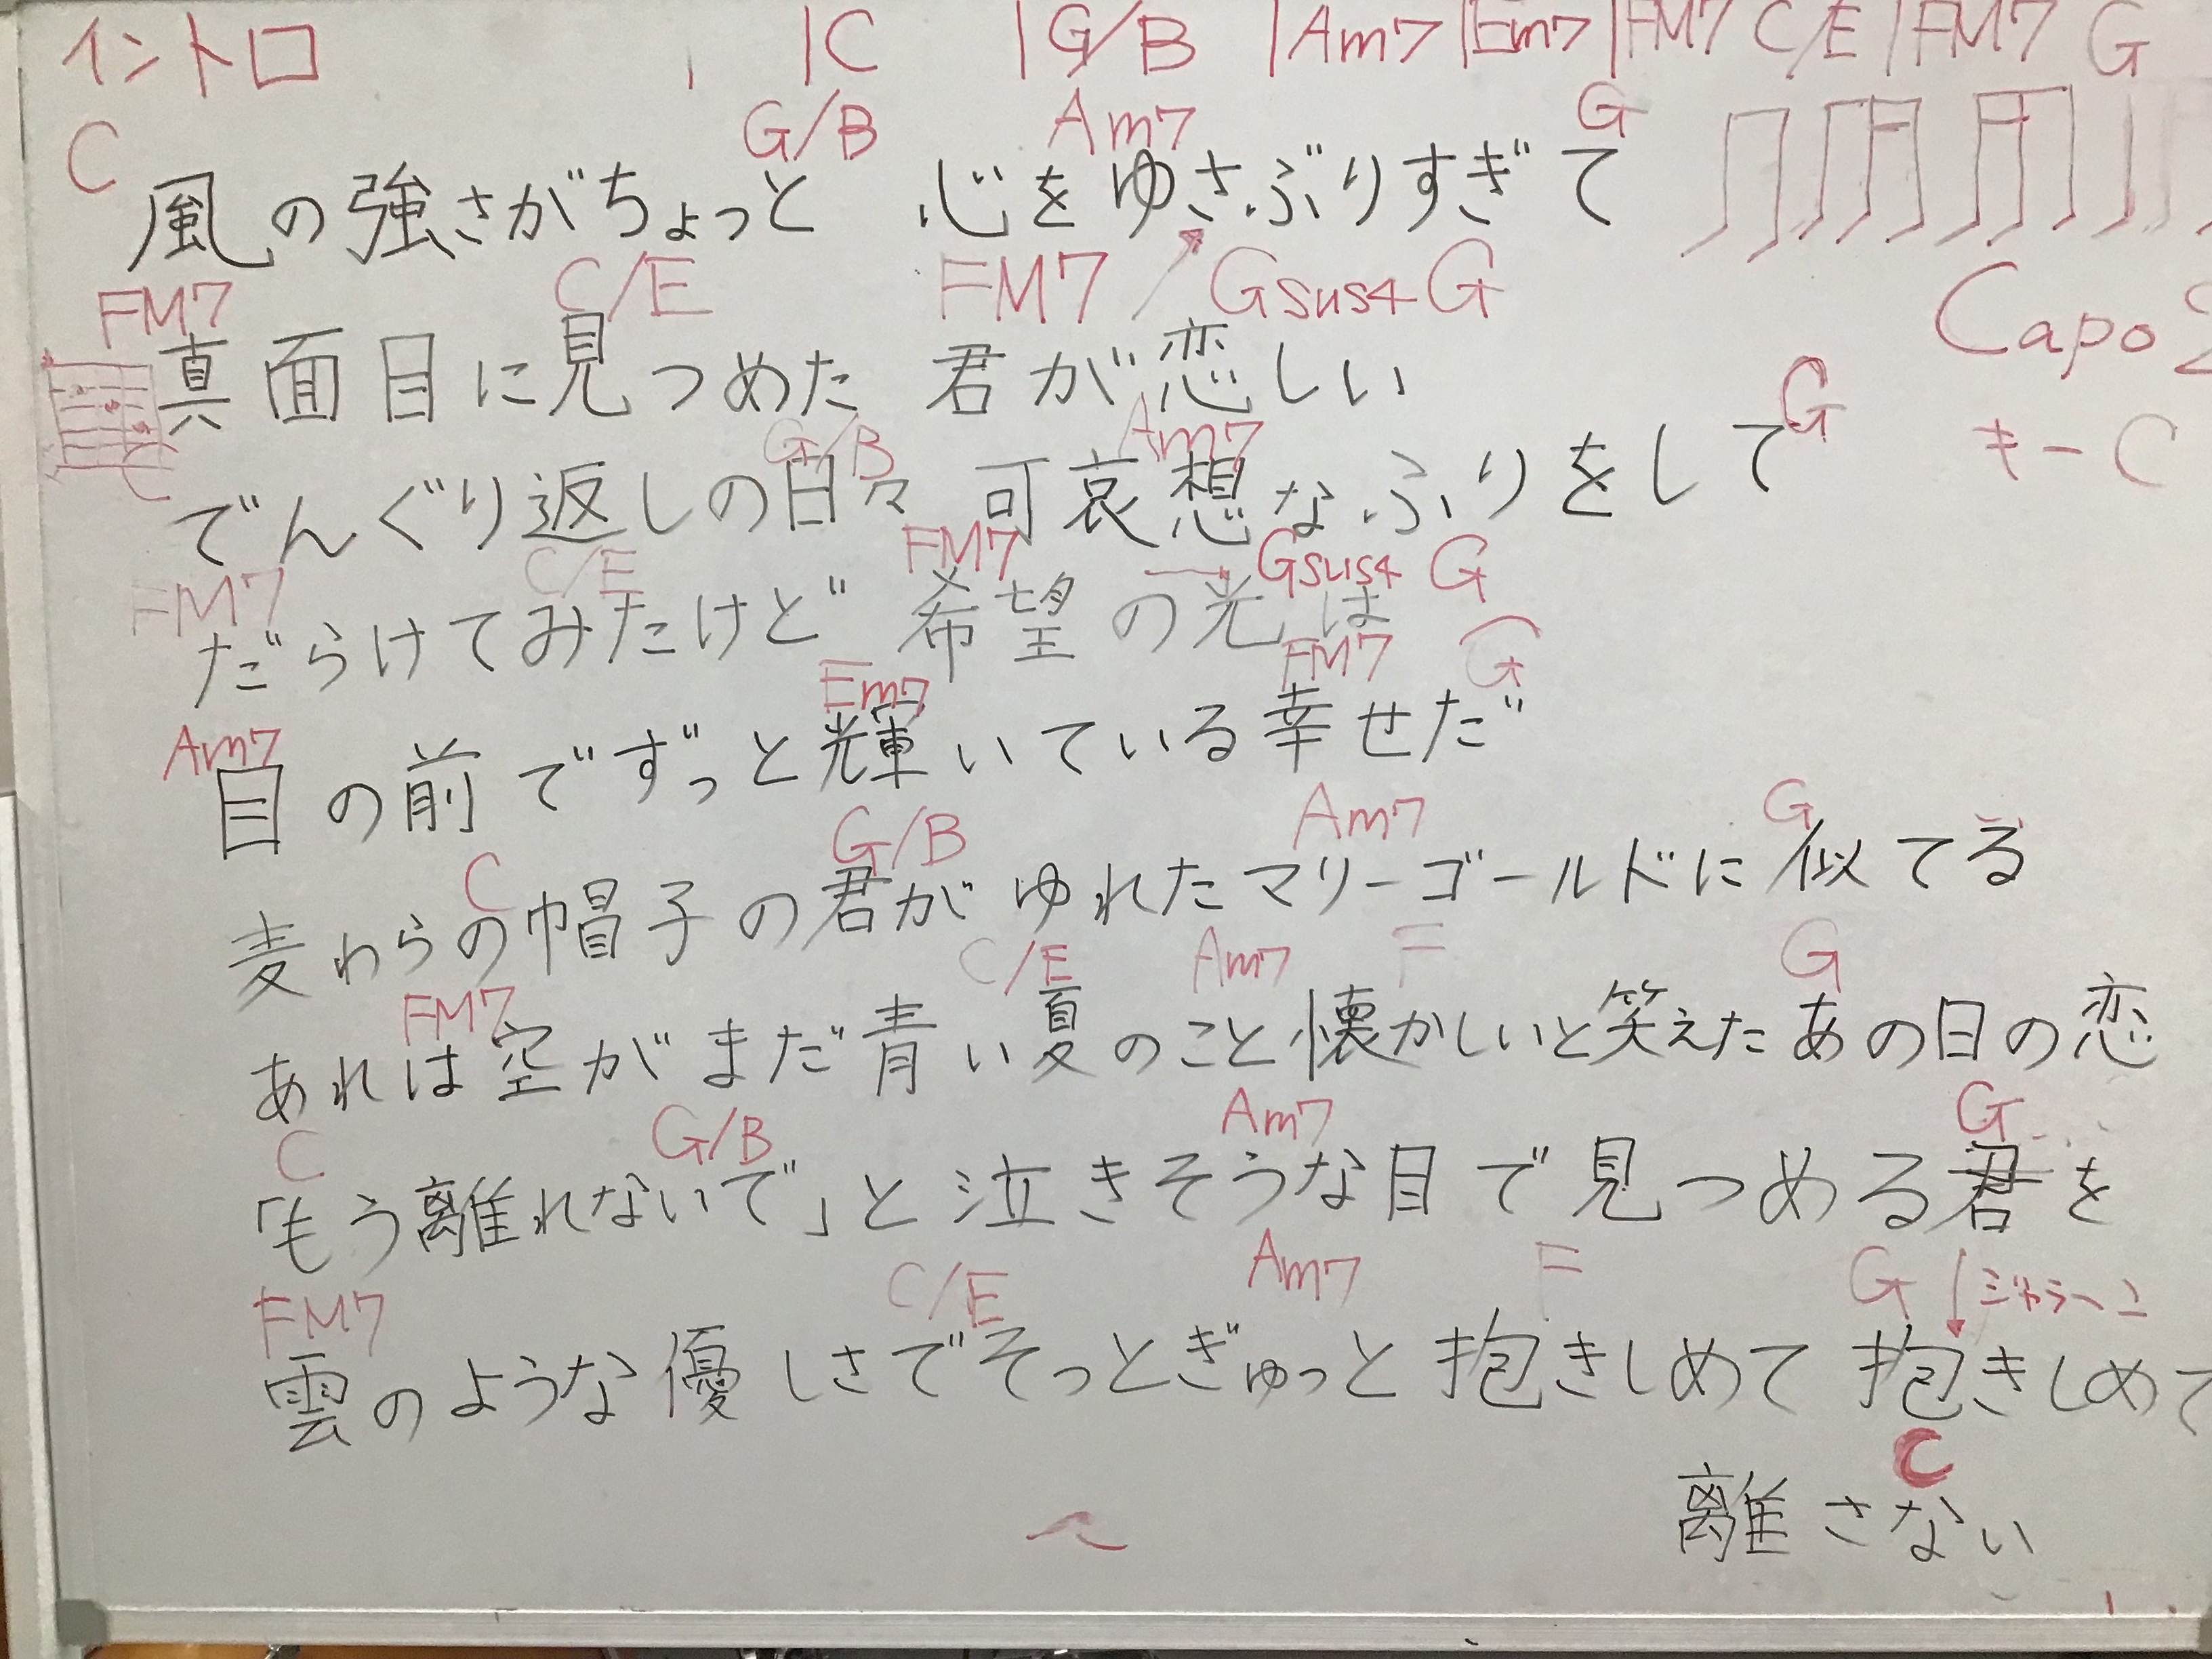 イントロ |C |G/B |Am7 |Em7 |FM7 C/E |FM7 G
C G/B Am7 G
風の強さがちょっと 心をゆさぶりすぎて
FM7 C/E FM7 Gsus4 G
Capo 2
真面目に見つめた 君が恋しい
キーC
C G/B Am7 G
でんぐり返しの日々 可哀想なふりをして
FM7 C/E FM7 Gsus4 G
だらけてみたけど 希望の光は
Am7 Em7 FM7 G
目の前でずっと輝いている幸せだ
C G/B Am7 G
麦わらの帽子の君が ゆれたマリーゴールドに似てる
FM7 C/E Am7 F G
あれは空がまだ青い夏のこと懐かしいと笑えたあの日の恋
C G/B Am7 G
「もう離れないで」と泣きそうな目で見つめる君を
FM7 C/E Am7 F G ジャラーン
雲のような優しさでそっとぎゅっと抱きしめて 抱きしめて
C
離さない